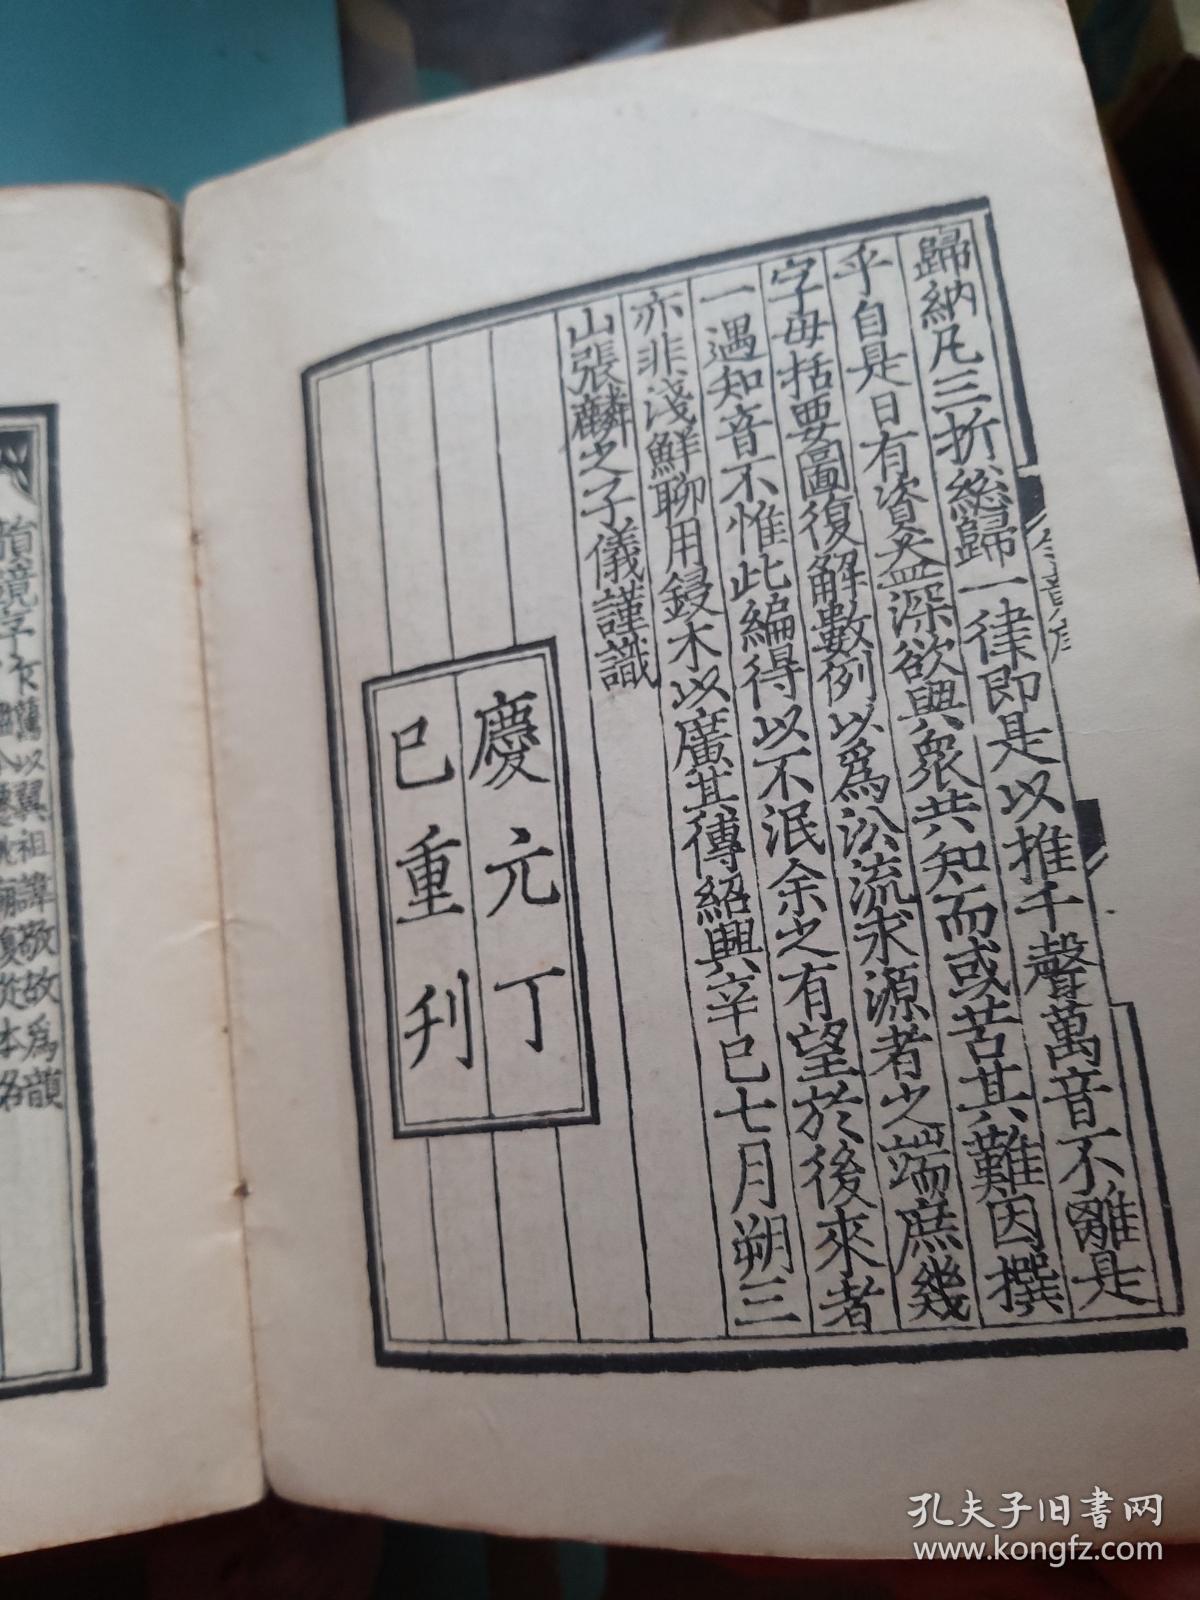 歸納凡三折總歸一律即是以推千聲萬音不離是
乎自是日有資益深欲與衆共知而或苦其難因撰
字母括要圖復解數例以爲沿流求源者之端庶幾
一遇知音不惟此編得以不泯余之有望於後來者
亦非淺鮮聊用鋟木以廣其傳紹興辛巳七月朔三
山張麟之子儀謹識
慶元丁
巳重刊
舊以翼祖諱敬故爲韻
復從本名
孔夫子旧书网
www.kongfz.com